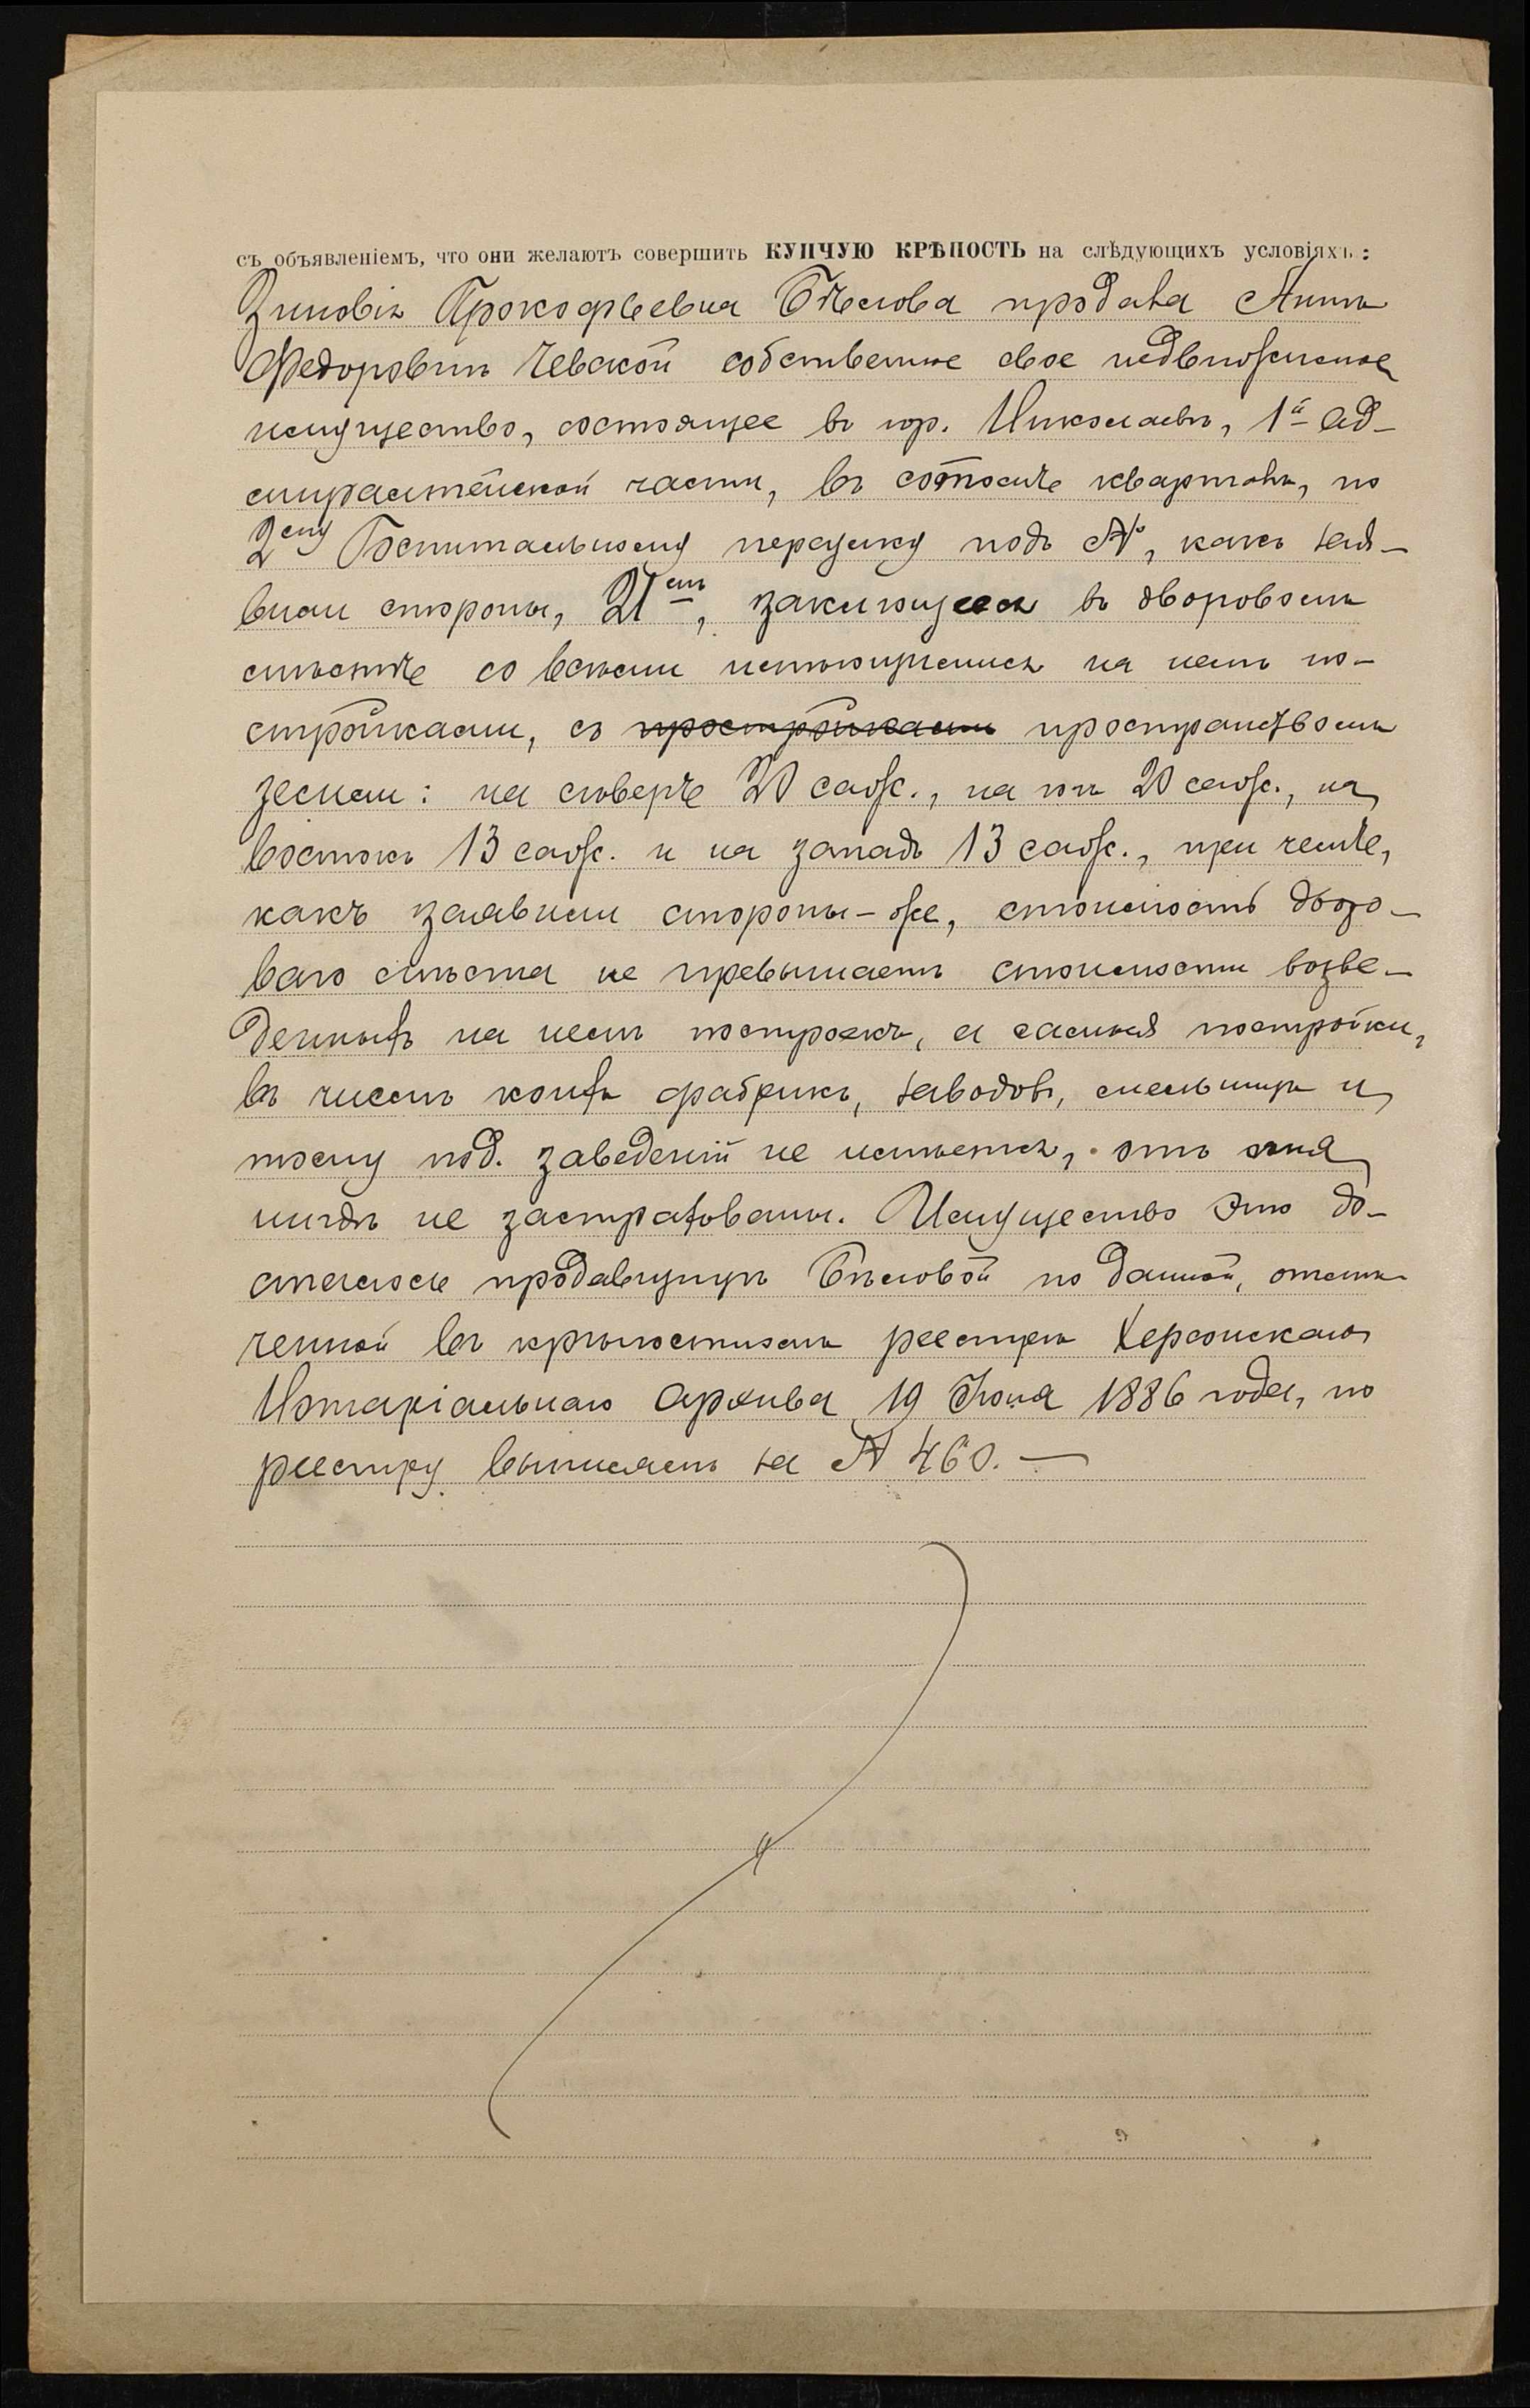 съ объявленіемъ, что они желаютъ совершить КУПЧУЮ КРѢПОСТЬ на слѣдующихъ условіяхъ:
Зиновія Прокофьевна Бѣлова продала Аннѣ
Федоровнѣ Чевской собственное свое недвижимое
имущество, состоящее въ гор. Николаевѣ, 1й Ад-
миралтейской части, въ сотомъ кварталѣ, по
2ему Госпитальному переулку подъ №, какъ зая-
вили стороны, 21мъ, заключающееся въ дворовомъ
мѣстѣ со всѣми имѣющимися на немъ по-
стройками, съ простройками пространствомъ
земли: на сѣверѣ 20 саж., на югѣ 20 саж., на
востокъ 13 саж. и на западъ 13 саж., при чемъ,
какъ заявили стороны-же, стоимость дворо-
ваго мѣста не превышаетъ стоимости возве-
денныхъ на немъ построекъ, а самыя постройки,
въ числѣ коихъ фабрикъ, заводовъ, мельницъ и
тому под. заведеній не имѣется, отъ огня
нигдѣ не застрахованы. Имущество это до-
сталось продавщицѣ Бѣловой по данной, отмѣ-
ченной въ крѣпостномъ реестрѣ Херсонскаго
Нотаріальнаго Архива 19 Іюня 1886 года, по
реестру выписемъ за № 460. —